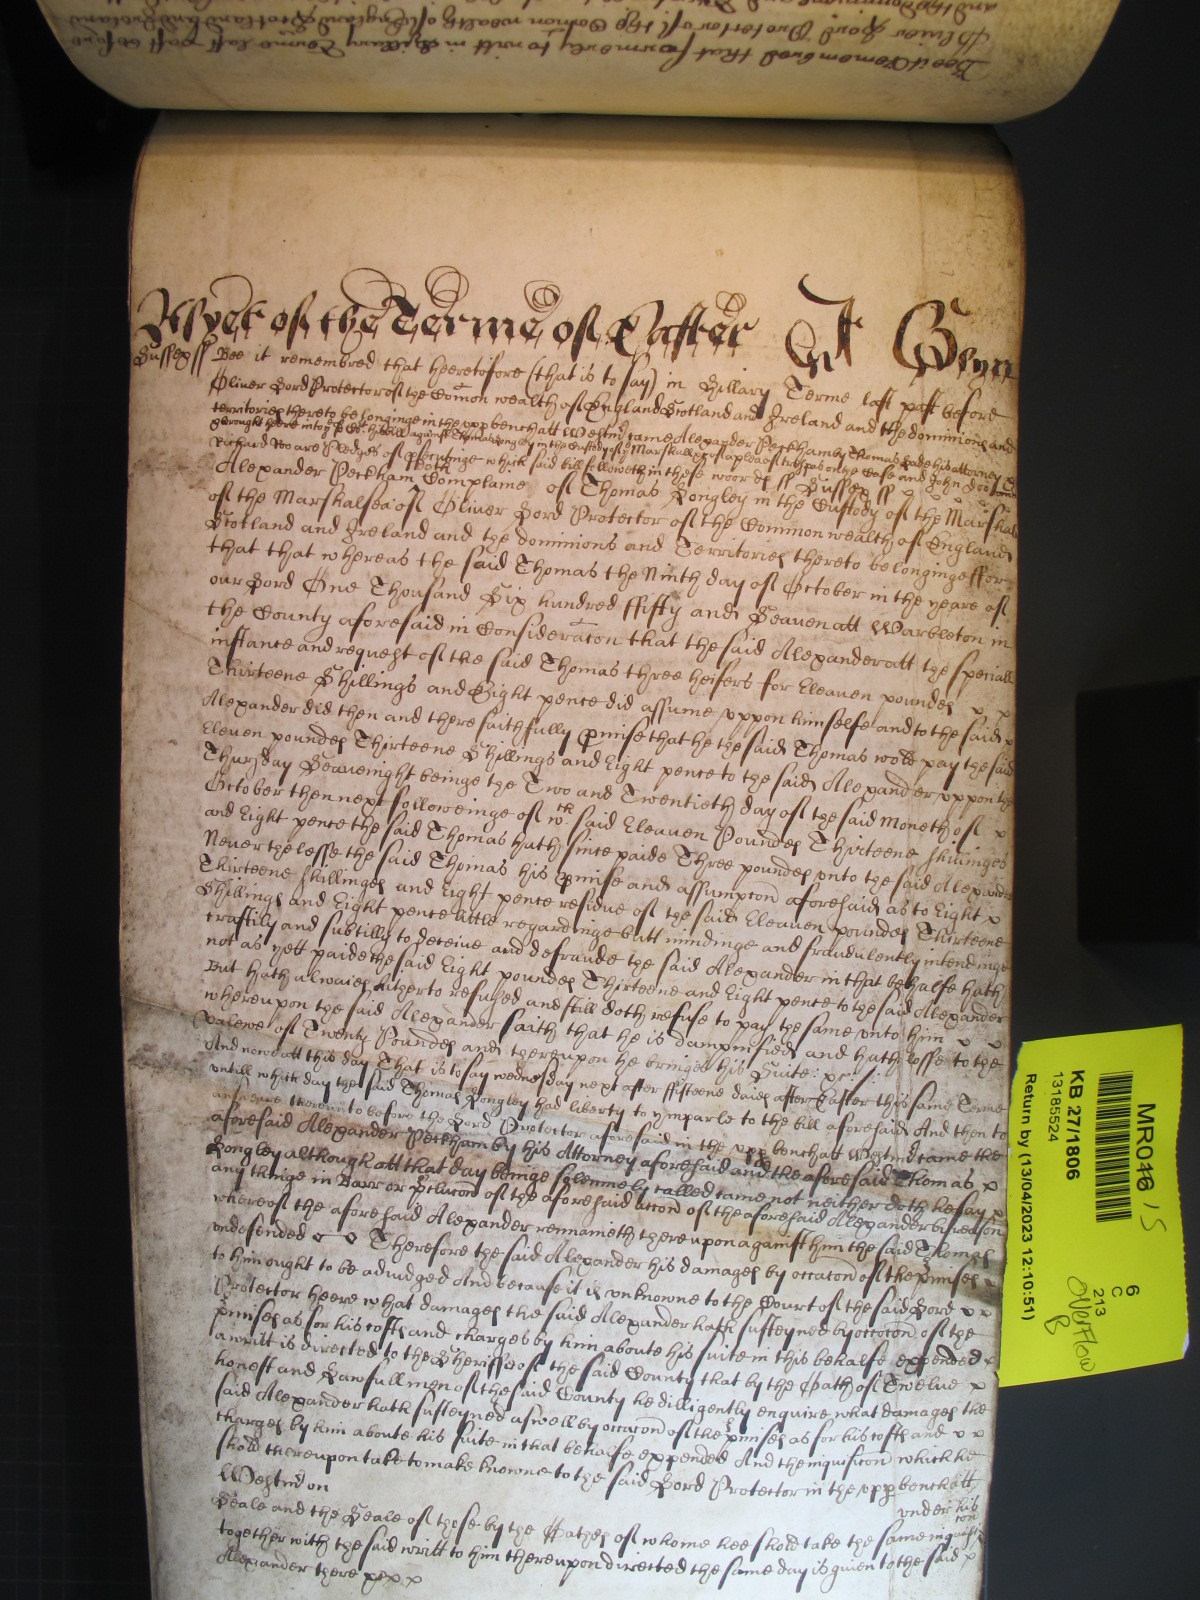 Bee it Remembred that formerly to witt in Hillary Terme last past before
Oliver Lord Protector of the Comon wealth of England Scotland and Ireland
and the dominions and
As yet of the Terme of Easter J Glynn
Sussex ss Bee it remembred that heeretofore (that is to say) in Hillary Terme last past before
Oliver Lord Protector of the Comon wealth of England Scotland and Ireland and the dominions and
territories thereto belonginge in the upp bench att Westmr came Alexander Peckham by Thomas his attorney
brought heere into the said bill against Thomas Longley in the Custody of ye Marshall &c of a plea of trespas on the Case and John Doe
Richard Roo are pledges of prosecutinge which said bill followeth in these woords ss Sussex ss
Alexander Peckham Complaines of Thomas Longley in the Custody of the Marshall
of the Marshalsea of Oliver Lord Protector of the Common wealth of England
Scotland and Ireland and the dominions and Territories thereto belonginge ffor
that that whereas the said Thomas the Ninth day of October in the yeare of
our Lord One Thousand Six hundred ffifty and Seaven att Warbleton in
the County aforesaid in Consideracon that the said Alexander att the speciall
instance and request of the said Thomas three heifers for Eleaven poundes
Thirteene Shillings and Eight pence did assume uppon himselfe and to the said
Alexander did then and there faithfully pmise that he the said Thomas wold pay the said
Eleven poundes Thirteene Shillings and Eight pence to the said Alexander uppon the
Thursday Seavenight beinge the Two and Twentieth day of the said Moneth of
October then next followeinge of wch said Eleaven Poundes Thirteene shillinges
and Eight pence the said Thomas hath since paide Three poundes unto the said Alexander
Neverthelesse the said Thomas his pmise and assumpcon aforesaid as to Eight
Thirteene shillinges and Eight pence residue of the said Eleaven poundes Thirteene
Shillings and Eight pence little regardinge butt mindinge and fraudulently intendinge
craftily and subtilly to deceive and defraude the said Alexander in that behalfe hath
not as yett paide the said Eight poundes Thirteene and Eight pence to the said Alexander
But hath alwaies hitherto refused and still doth refuse to pay the same unto him
whereupon the said Alexander saith that he is dampnified and hath losse to the
valewe of Twenty Poundes and thereupon he bringes his Suite: &c:
And now att this day That is to say wednesday next after fifteene daies after Easter this same Terme
untill which day the said Thomas Longley had liberty to ymparle to the bill aforesaid And then to
answere thereunto before the Lord Protector aforesaid in the upp bench att Westmr came the
aforesaid Alexander Peckham by his Attorney aforesaid and the aforesaid Thomas
Longley although att that day beinge solemnely called came not neither doth he say
any thinge in Barr or Preclucon of the aforesaid accon of the aforesaid Alexander by reason
whereof the aforesaid Alexander remaineth thereupon against him the said Thomas
undefended Therefore the said Alexander his damages by occacon of the pmises
to him ought to be adiudged And because it is unknowne to the Court of the said Lord
Protector heere what damages the said Alexander hath susteyned by occacon of the
pmises as for his costs and charges by him aboute his suite in this behalfe expended
a writt is directed to the Sheriffe of the said County that by the Oath of Twelve
honest and Lawfull men of the said County he dilligently enquire what damages the
said Alexander hath susteyned aswell by occacon of the pmises as for his costs and
charges by him aboute his suite in that behalfe expended And the inquisicon which he
shold thereupon take to make knowne to the said Lord Protector in the upp bench att
Westmr on under his
Seale and the Seale of those by the Oathes of whome hee shold take the same inquisicon
together with the said writt to him thereupon directed the same day is given to the said
Alexander there &c
MR046 15
KB 27/1806
13185524
Return by (13/04/2023 12:10:51)
6
C
213
Overflow
B